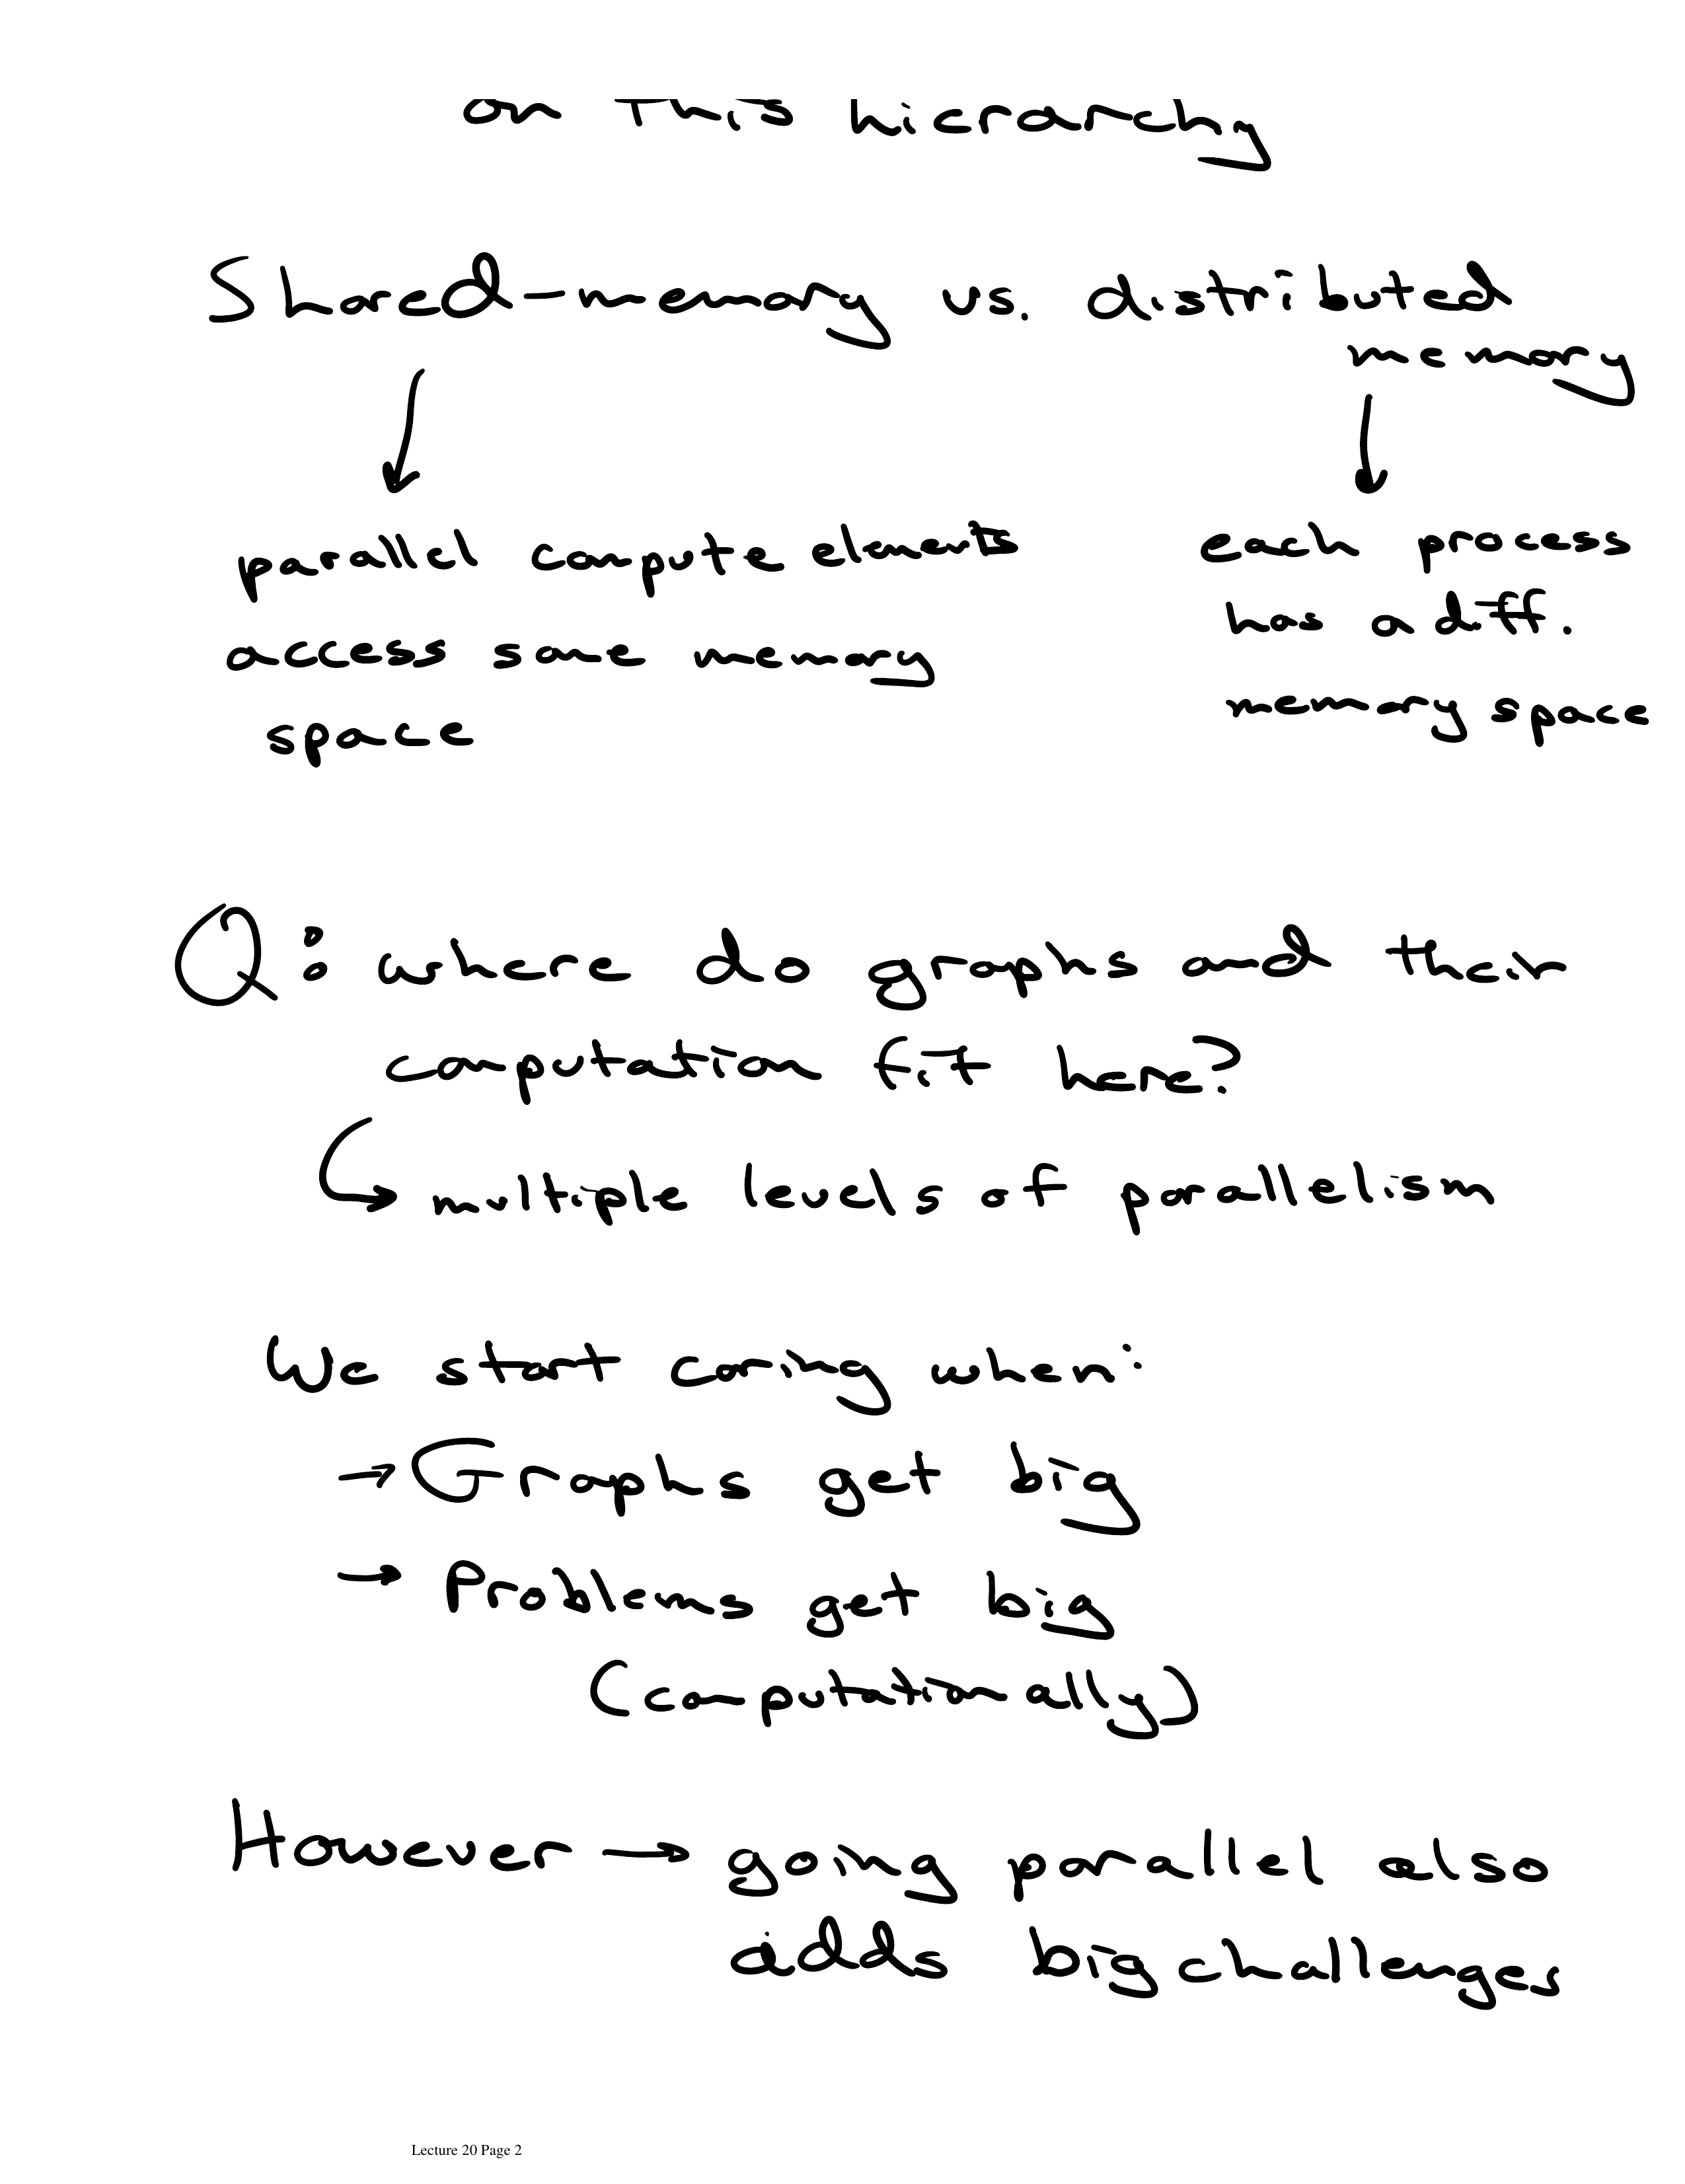 on this hierarchy
Shared-memory vs. distributed
memory
parallel compute elements
access same memory
space
each process
has a diff.
memory space
Q: where do graphs and their
computation fit here?
multiple levels of parallelism
We start caring when:
→ Graphs get big
→ Problems get big
(computationally)
However → going parallel also
adds big challenges
Lecture 20 Page 2